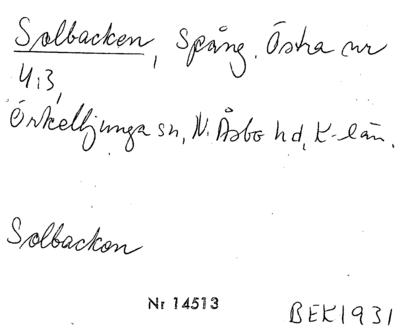 Solbacken, Spång. Östra nr
4:3,
Örkelljunga sn, N. Åsbo hd, K-län.
Solbacken
Nr 14513
BEK1931